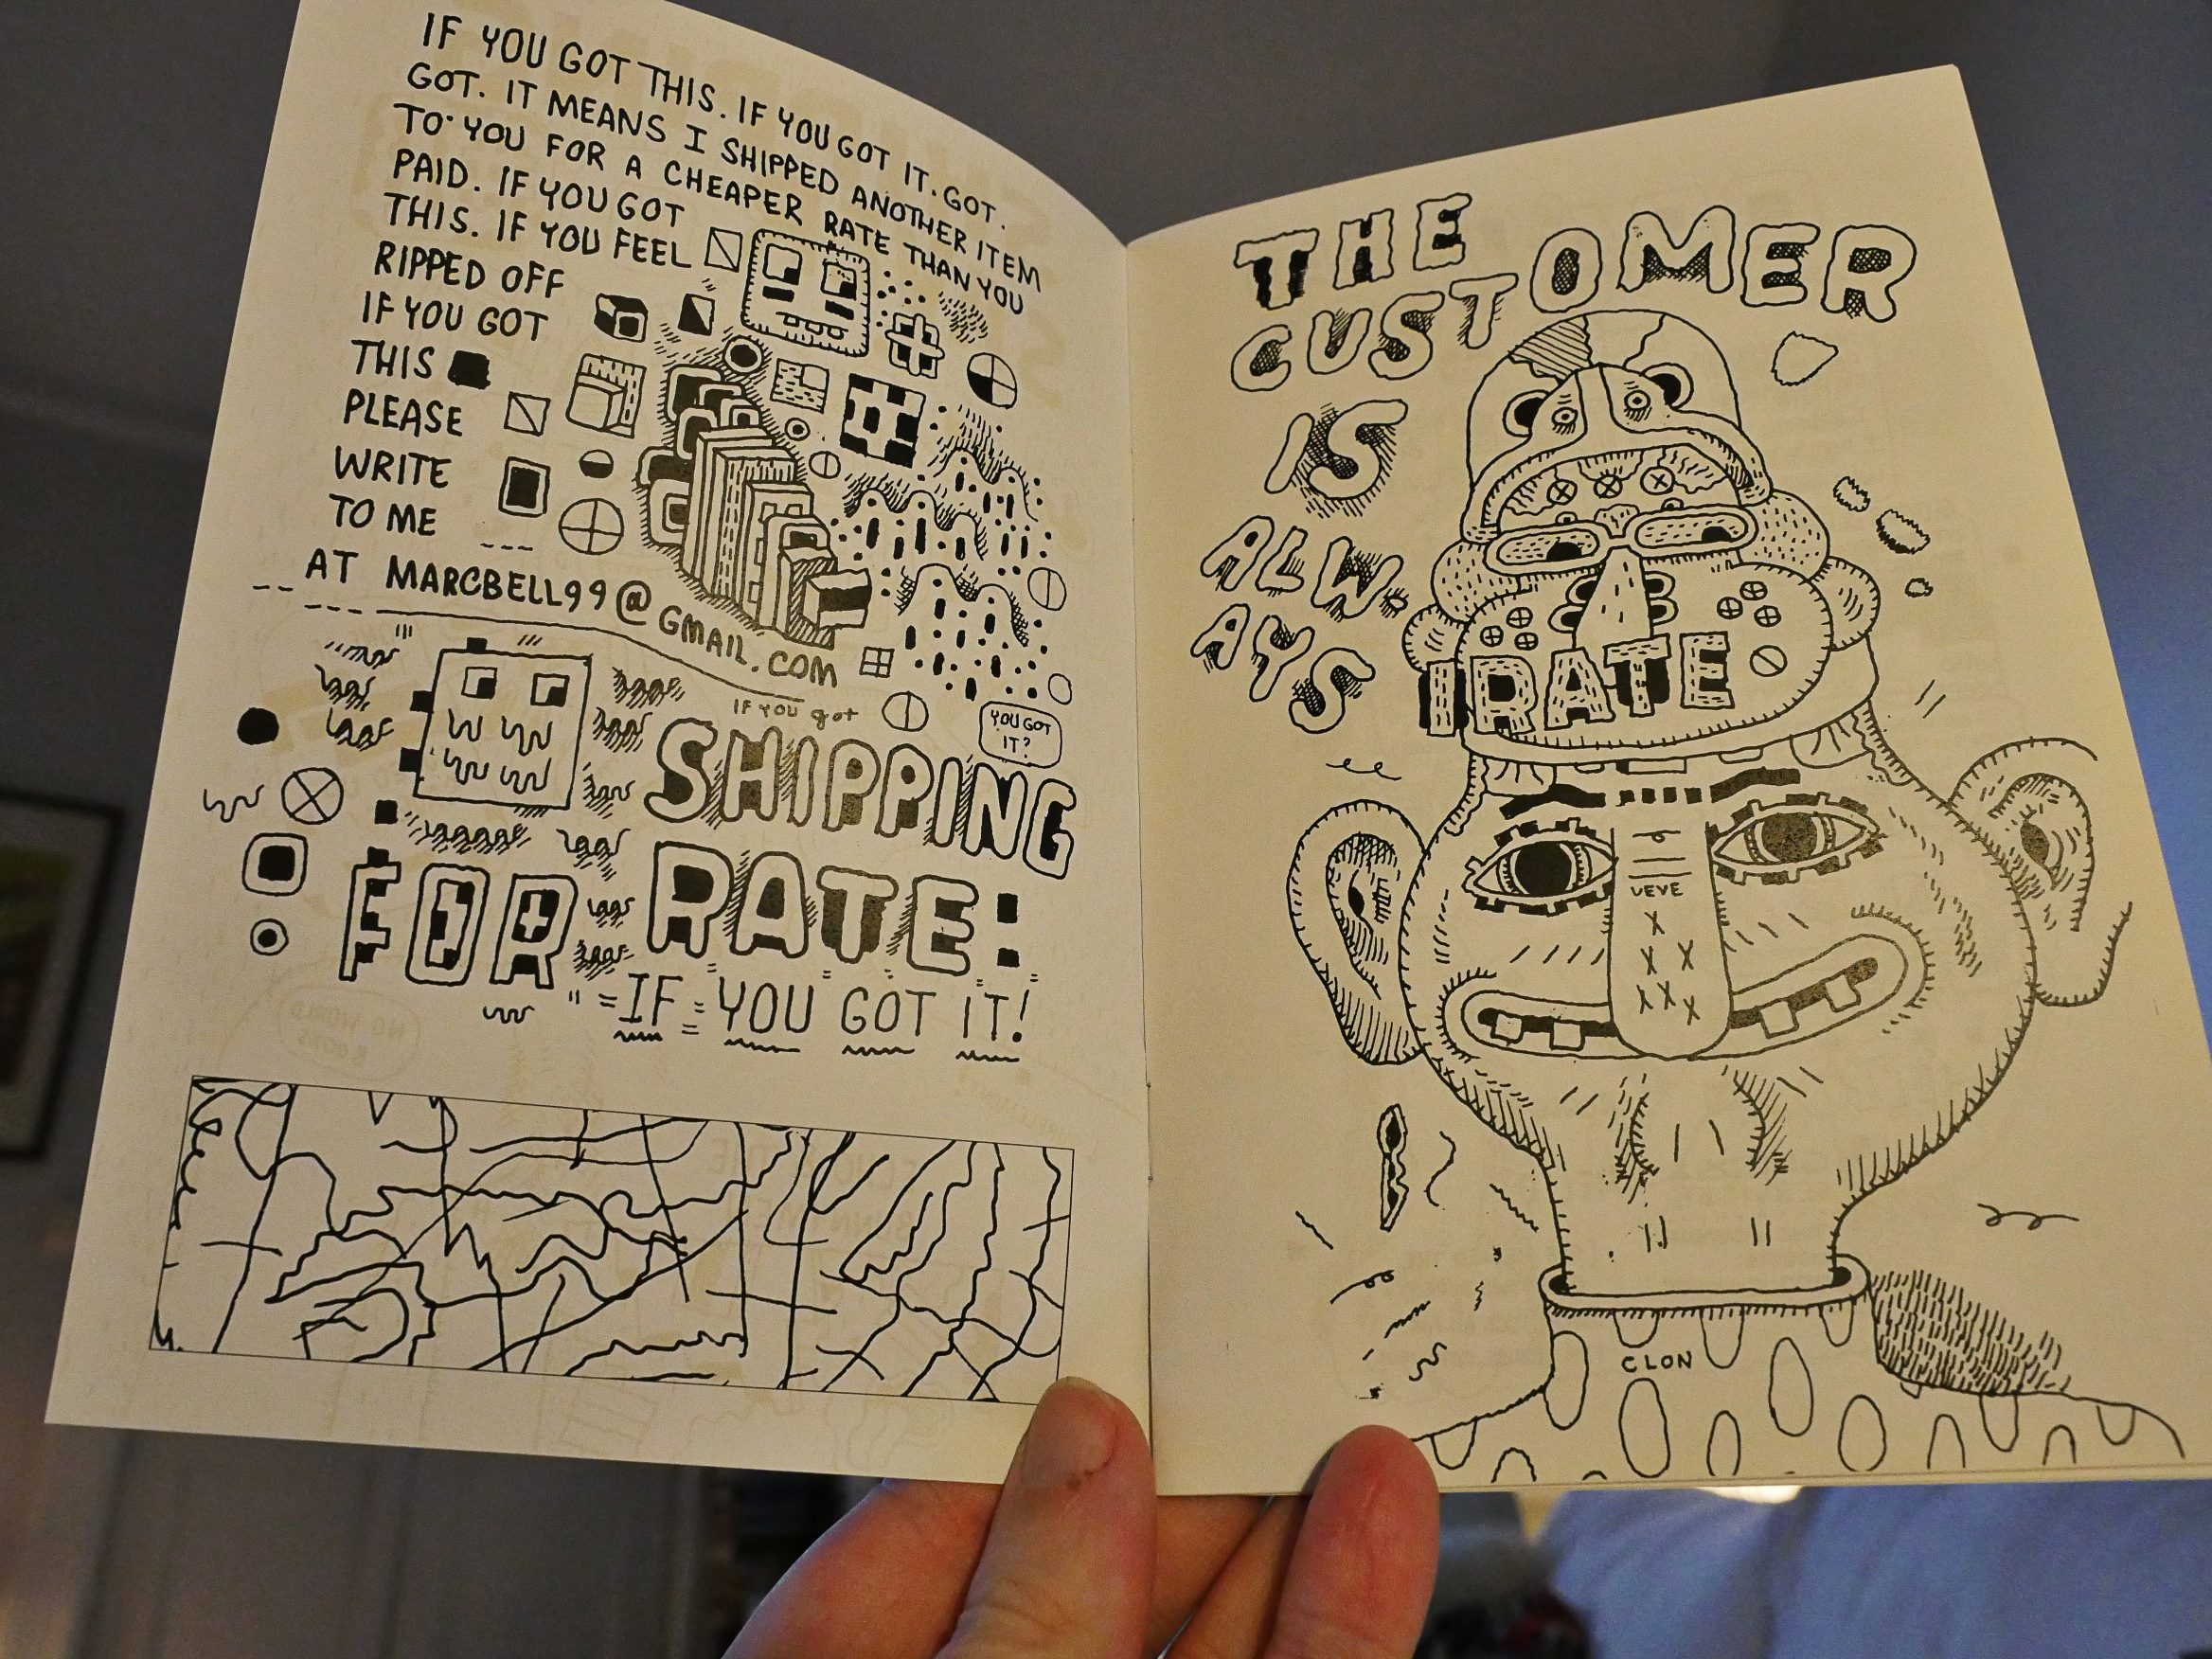 IF YOU GOT THIS. IF YOU GOT IT. GOT.
GOT. IT MEANS I SHIPPED ANOTHER ITEM
TO YOU FOR A CHEAPER RATE THAN YOU
PAID. IF YOU GOT
THIS. IF YOU FEEL
RIPPED OFF
IF YOU GOT
THIS
PLEASE
WRITE
TO ME
AT MARCBELL99@GMAIL.COM
IF YOU got
YOU GOT
IT?
SHIPPING
FOR RATE:
IF YOU GOT IT!
THE
CUSTOMER
IS
ALW
AYS
IRATE
VEVE
CLON